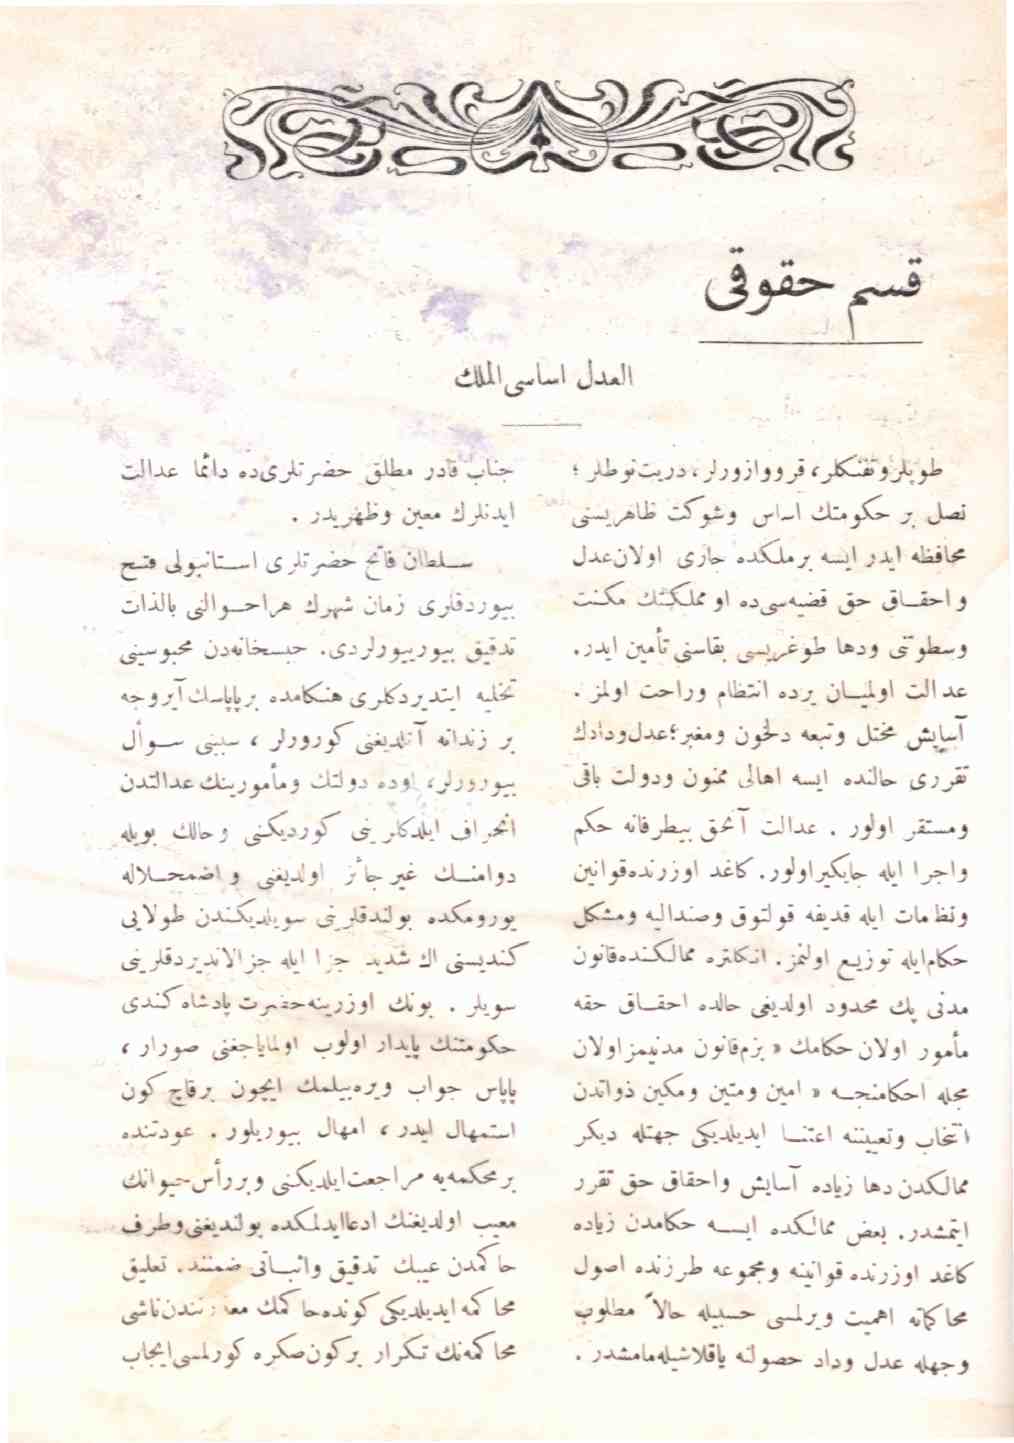 قسم حقوقی
العدل اساسی الملك
طوپلر و تفنكلر، قرووازورلر، دریت‌نوطلر ؛
نصل بر حكومتك اساس وشوكت ظاهریسنی
محافظه ایدر ایسه بر ملكده جاری اولان عدل
واحقـاق حق قضیه‌سی‌ده او مملكتك مكنت
وسطوتنی ودها طوغریسی بقاسنی تأمین ایدر.
عدالت اولمیـان یرده انتظام وراحت اولمز .
آسایش مختل وتبعه دلخون ومغبر؛ عدل ودادك
تقرری حالنده ایسه اهالی ممنون ودولت باقی
ومستقر اولور . عدالت آنجق بیطرفانه حكم
واجرا ایله جایكیر اولور. كاغد اوزرنده قوانین
ونظامات ایله قدیفه قولتوق وصندالیه ومشكل
حكام ایله توزیع اولنمز. انكلتره ممالكنده قانون
مدنی پك محدود اولدیغی حالده احقـاق حقه
مأمور اولان حكامك « بزم قانون مدنیمز اولان
مجله احكامنجـه » امین ومتین ومكین ذواتدن
انتخاب وتعییننه اعتنـا ایدیلدیكی جهتله دیكر
ممالكدن دها زیاده آسایش واحقاق حق تقرر
ایتمشدر. بعض ممالكده ایسـه حكامدن زیاده
كاغد اوزرنده قوانینه ومجموعه طرزنده اصول
محاكماته اهمیت ویرلمسی حسبیله حالاً مطلوب
وجهله عدل وداد حصولنه یاقلاشیله‌مامشدر .
جناب قادر مطلق حضرتلری‌ده دائما عدالت
ایدنلرك معین وظهریدر .
سـلطان فاتح حضرتلری اسـتانبولی فتـح
بیوردقلری زمان شهرك هر احـوالنی بالذات
تدقیق بیورییورلردی. حبسخانه‌دن محبوسینی
تخلیه ایتدیردكلری هنكامده بر پاپاسك آیروجه
بر زندانه آتلدیغنی كورورلر ، سببنی سـوأل
بیورورلر، اوده دولتك ومأمورینك عدالتدن
انحراف ایلدكلرینی كوردیكنی وحالك بویله
دوامنـك غیر جائز اولدیغنی واضمحـلاله
یورومكده بولندقلرینی سویلدیكندن طولایی
كندیسنی اك شدید جزا ایله جزالاندیردقلرینی
سویلر . بونك اوزرینه حضرت پادشاه كندی
حكومتنك پایدار اولوب اولمایاجغنی صورار ،
پاپاس جواب ویره‌بیلمك ایچون برقاچ كون
استمهال ایدر ، امهال بیوریلور . عودتنده
بر محكمه‌یه مراجعت ایلدیكنی وبررأس حیوانك
معیب اولدیغنك ادعا ایدلمكده بولندیغنی وطرف
حاكمدن عیبك تدقیق واثبـاتی ضمننده تعلیق
محاكمه ایدیلدیكی كونده حاكمك معذرتندن ناشی
محاكمه‌نك تـكرار بر كون صكره كورلمسی ایجاب